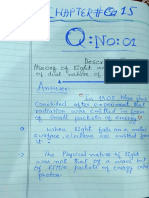 CHAPTER # 15
Q:No:01
Descr
theory of light
of dual nature of
Answer:
In 1905
concluded after experiment that
radiation was emitted in form
of small packets of energy
when light falls on a metal
surface electrons are emitted
for it
The physical nature of light
was not that of a wave but
of little packets of energy
photon